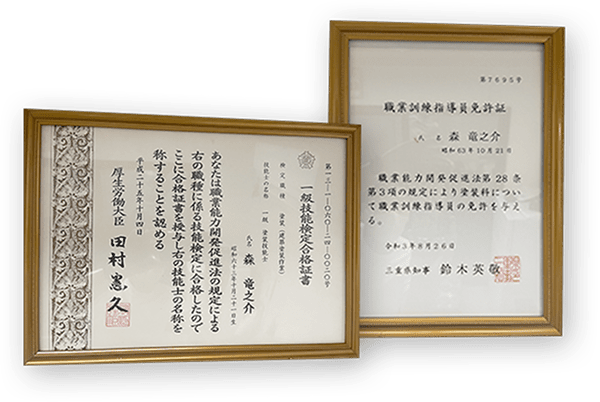 第一三-一-〇六〇-二四-〇〇二〇号
一級技能検定合格証書
検定職種 塗装(建築塗装作業)
技能士の名称 一級 塗装技能士
氏名 森 竜之介
昭和六十三年十月二十一日生
あなたは職業能力開発促進法の規定による
右の職種に係る技能検定に合格したので
ここに合格証書を授与し右の技能士の名称を
称することを認める
平成二十五年十月四日
厚生労働大臣 田村憲久
第7695号
職業訓練指導員免許証
氏名 森 竜之介
昭和63年10月21日
職業能力開発促進法第28条
第3項の規定により塗装科につい
て職業訓練指導員の免許を与え
る。
令和3年8月26日
三重県知事 鈴木英敬